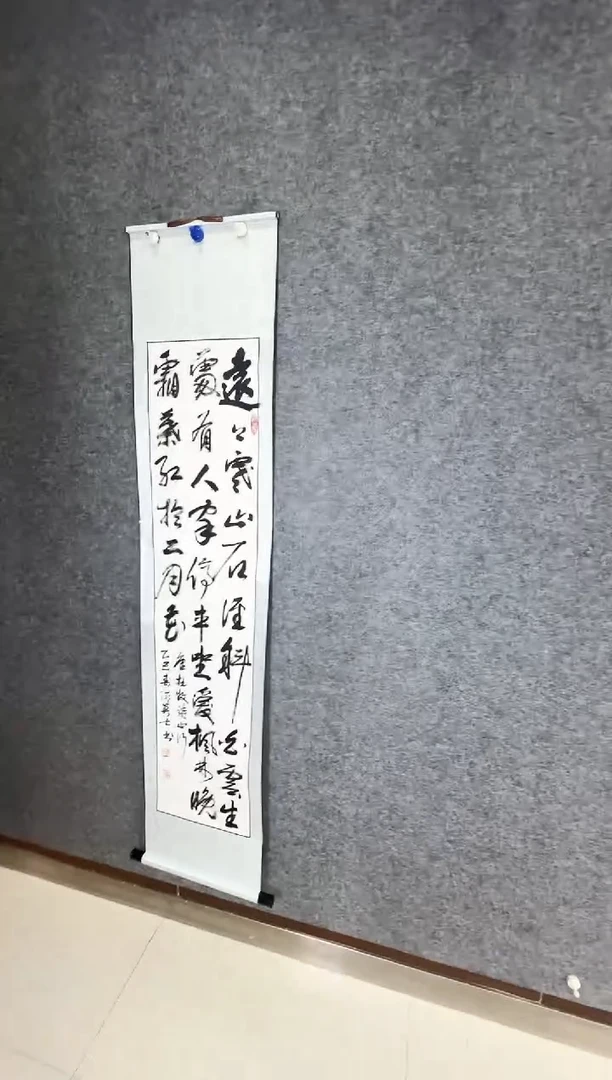 遠上寒山石徑斜白雲生
處有人家停車坐愛楓林晚
霜葉紅於二月花
唐杜牧詩山行
乙巳春書